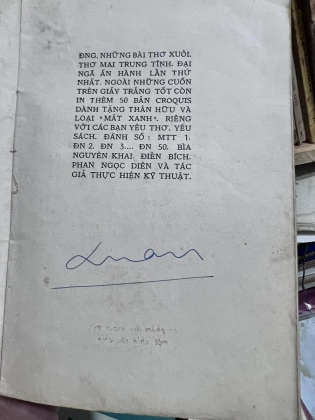 ĐNG, NHỮNG BÀI THƠ XUÔI.
THƠ MAI TRUNG TĨNH. ĐẠI
NGÃ ẤN HÀNH LẦN THỨ
NHẤT. NGOÀI NHỮNG CUỐN
TRÊN GIẤY TRẮNG TỐT CÒN
IN THÊM 50 BẢN CROQUIS
DÀNH TẶNG THÂN HỮU VÀ
LOẠI «MẮT XANH». RIÊNG
VỚI CÁC BẠN YÊU THƠ. YÊU
SÁCH. ĐÁNH SỐ: MTT 1.
ĐN 2. ĐN 3.... ĐN 50. BÌA
NGUYÊN KHAI. ĐIỀN BÍCH.
PHAN NGỌC DIÊN VÀ TÁC
GIẢ THỰC HIỆN KỸ THUẬT.